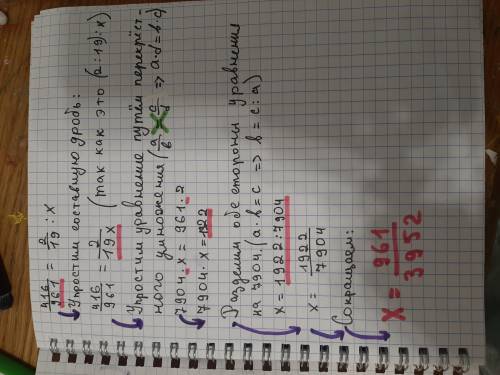 416/961 = 2/19 : x
Упростим составную дробь:
416/961 = 2/19x (так как это (2:19):x)
Упростим уравнение путём перекрёст-
ного умножения (a/b = c/d => a·d=b·c)
7904·x = 961·2
7904·x = 1922
Разделим обе стороны уравнения
на 7904. (a·b=c => b=c:a)
x = 1922:7904
x = 1922/7904
Сокращаем:
x = 961/3952